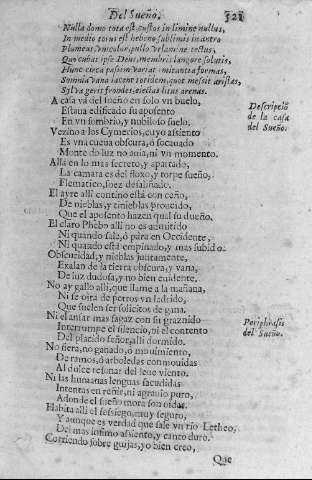 Del Sueño.
321
Nulla domo tota est, custos in limine nullus,
In medio torus est hebeno sublimis in antro
Plumeus, vnicolor, pullo velamine tectus,
Quo cubat ipse Deus, membris langore solutis,
Hunc circa passim varias imitantia formas,
Somnia vana iacent totidem, quot messis aristas,
Sylva gerit frondes, eiectas litus arenas.
A casa và del sueño en solo vn buelo,
Estaua edificado su aposento
En vn sombrio, y nubiloso suelo.
Vezino a los Cymerios, cuyo assiento
Es vna cueua obscura, ò socauado
Monte do luz no auia, ni vn momento.
Allà en lo mas secreto, y apartado,
La camara es del floxo, y torpe sueño,
Flematico, soez desaliñado.
El ayre alli contino està con ceño,
De nieblas, y tinieblas proueido,
Que el aposento hazen qual su dueño.
El claro Phebo alli no es admitido
Ni quando sale, ò para en Occidente,
Ni quando està empinado, y mas subido.
Obscuridad, y nieblas juntamente,
Exalan de la tierra obscura, y vana,
De luz dudosa, y no bien euidente.
No ay gallo alli, que llame a la mañana,
Ni se oirà de perros vn ladrido,
Que suelen ser solicitos de gana.
Ni el ansar mas sagaz con su graznido
Interrumpe el silencio, ni el contento
Del placido señor, alli dormido.
No fiera, no ganado, ò mouimiento,
De ramos, ò arboledas conmouidas
Al dulce resonar del leue viento.
Ni las humanas lenguas sacudidas
Intentas en reñir, ni agrauio puro,
Adonde el sueño mora son oidas.
Habita alli el sossiego, muy seguro,
Y aunque es verdad que sale vn rio Letheo,
Del mas infimo assiento, y canto duro.
Corriendo sobre guijas, yo bien creo,
Que
Descripciõ
de la casa
del Sueño.
Periphrasis
del Sueño.